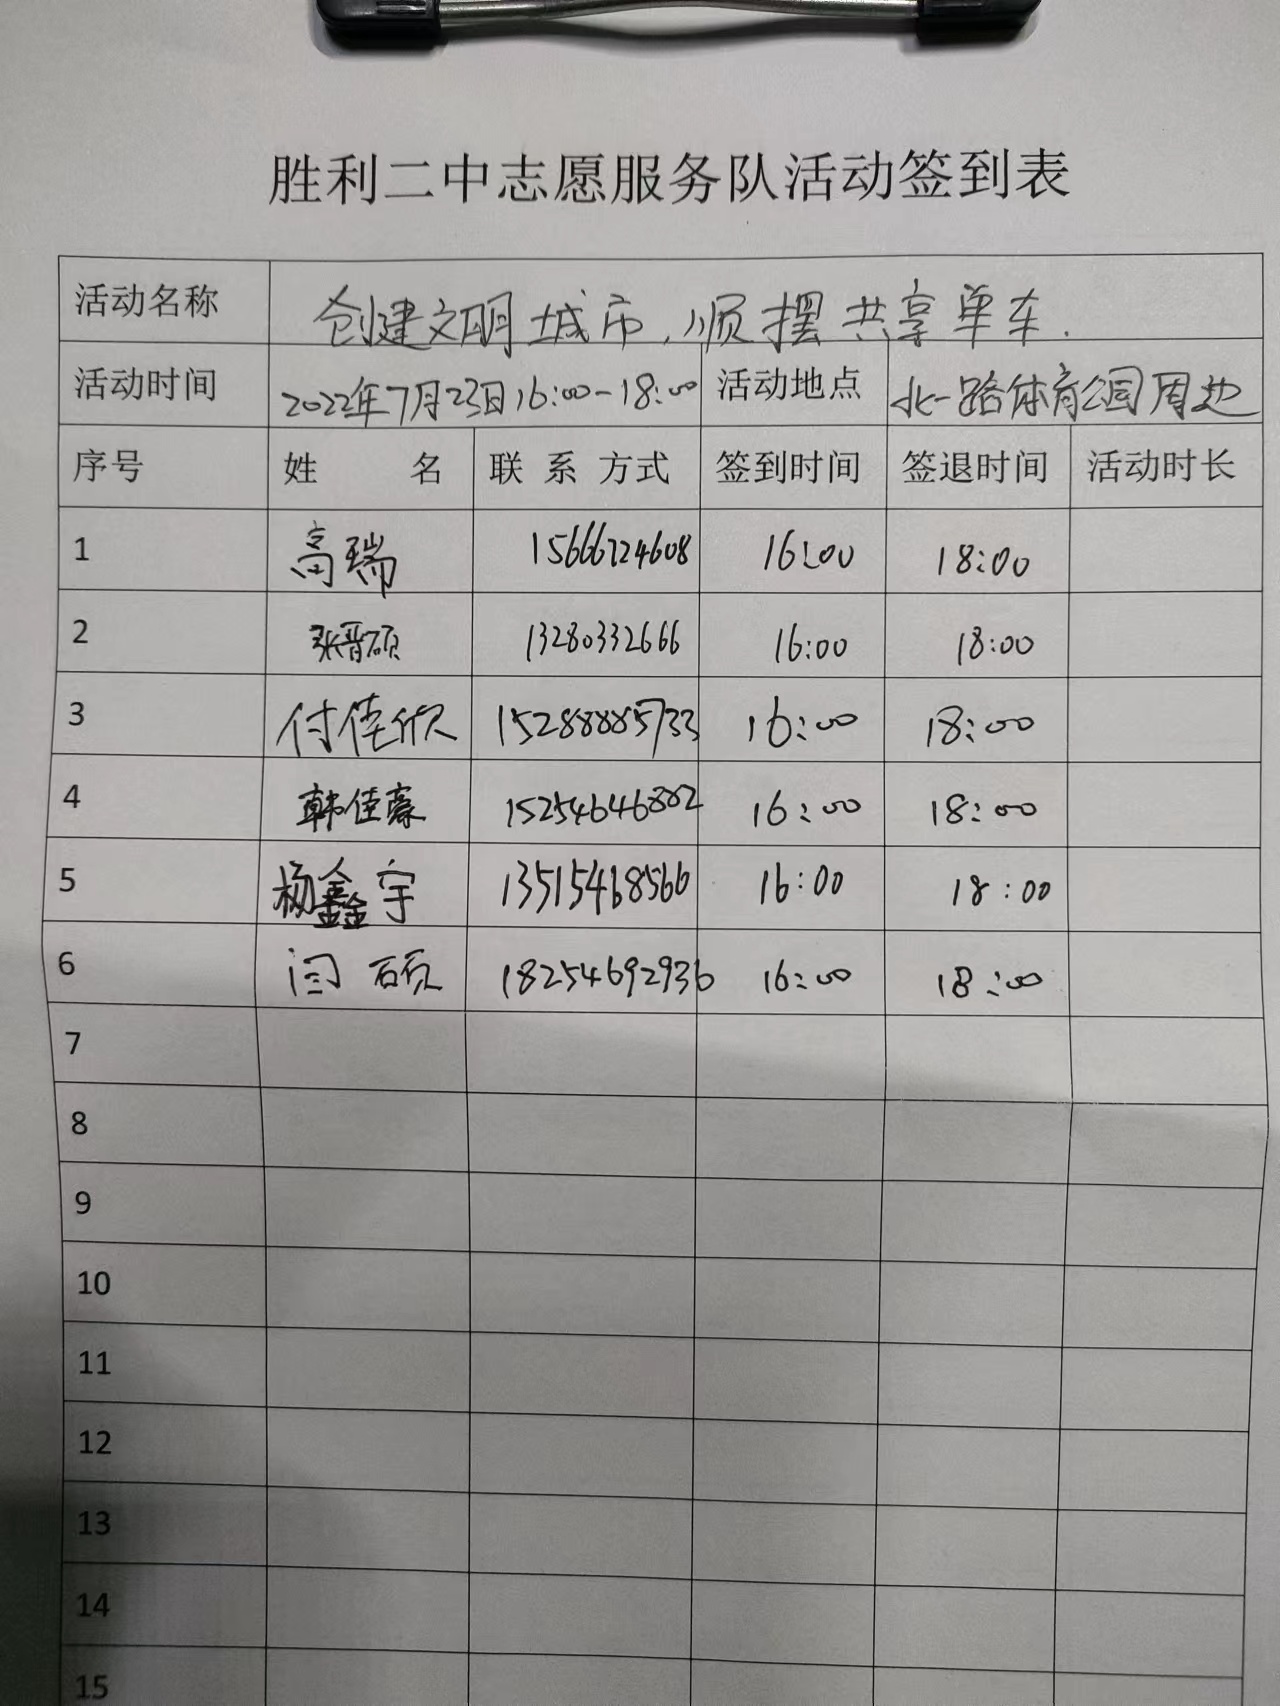 胜利二中志愿服务队活动签到表
活动名称 创建文明城市,顺摆共享单车.
活动时间 2022年7月23日16:00-18:00 活动地点 北一路体育公园周边
序号 姓 名 联 系 方式 签到时间 签退时间 活动时长
1 高瑞 15666724608 16:00 18:00
2 张晋硕 13280332666 16:00 18:00
3 付佳欣 15288885733 16:00 18:00
4 韩佳豪 15254646882 16:00 18:00
5 杨鑫宇 13515468566 16:00 18:00
6 闫硕 18254692936 16:00 18:00
7
8
9
10
11
12
13
14
15